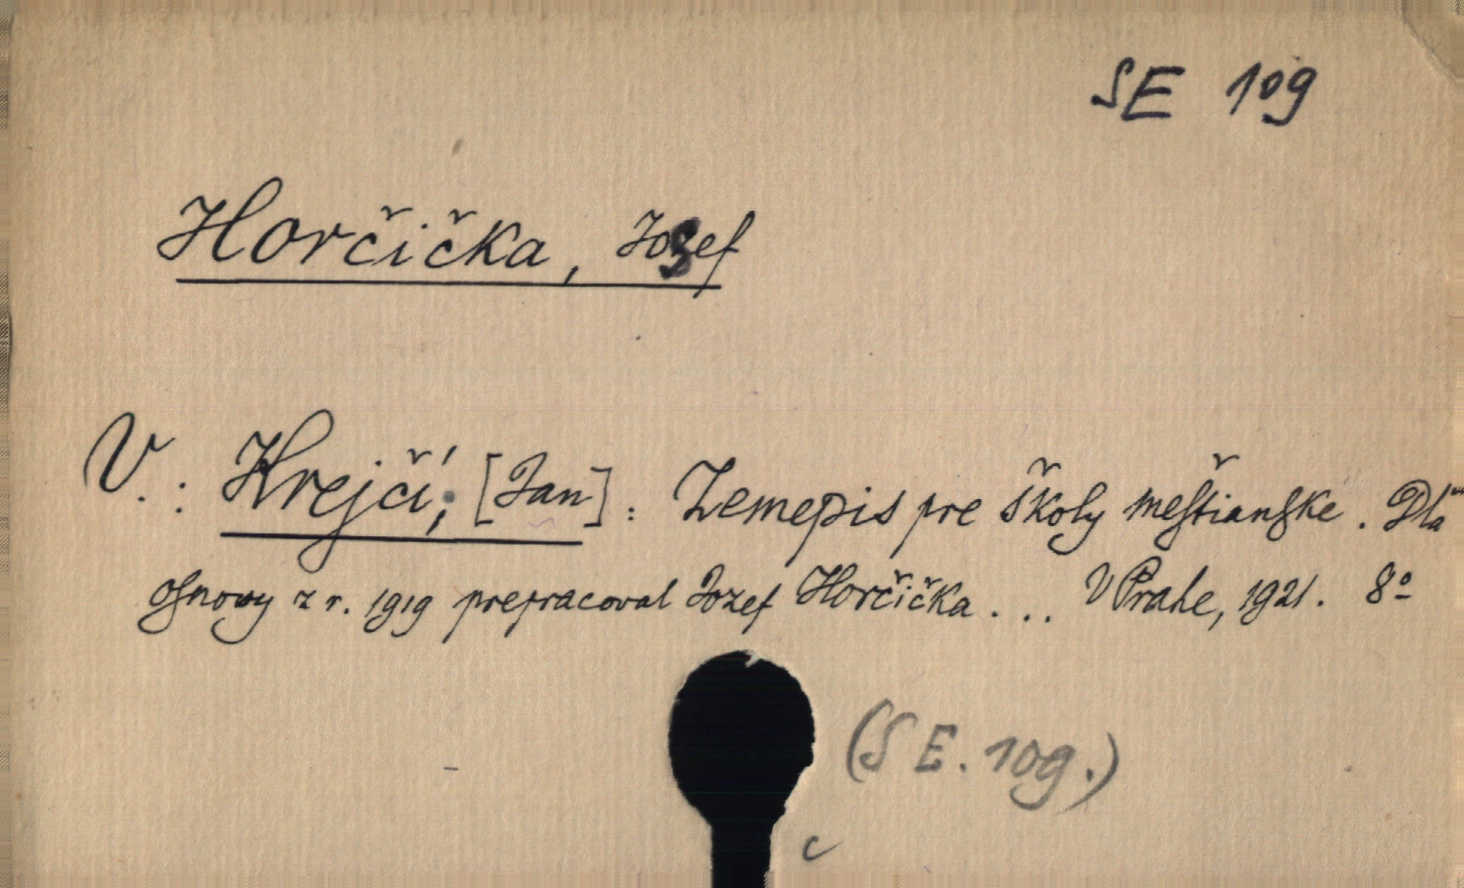 SE 109
Horčička, Jozef
V. : Krejčí, [Jan] : Zemepis pre školy meštianske. Dľa
osnovy z r. 1919 prepracoval Jozef Horčička... V Prahe, 1921. 8º
(SE. 109.)
c